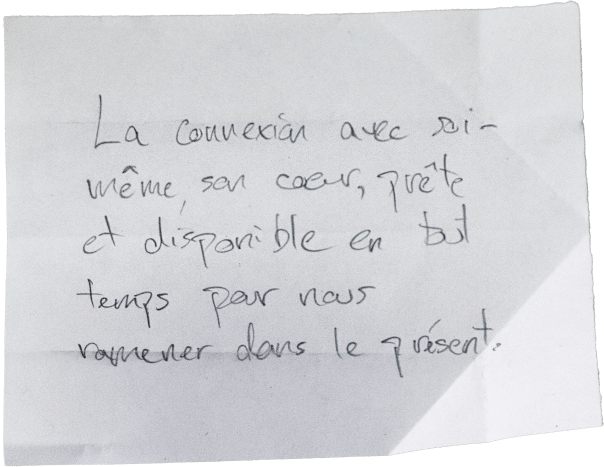 La connexion avec soi-
même, son coeur, prête
et disponible en tout
temps pour nous
ramener dans le présent.